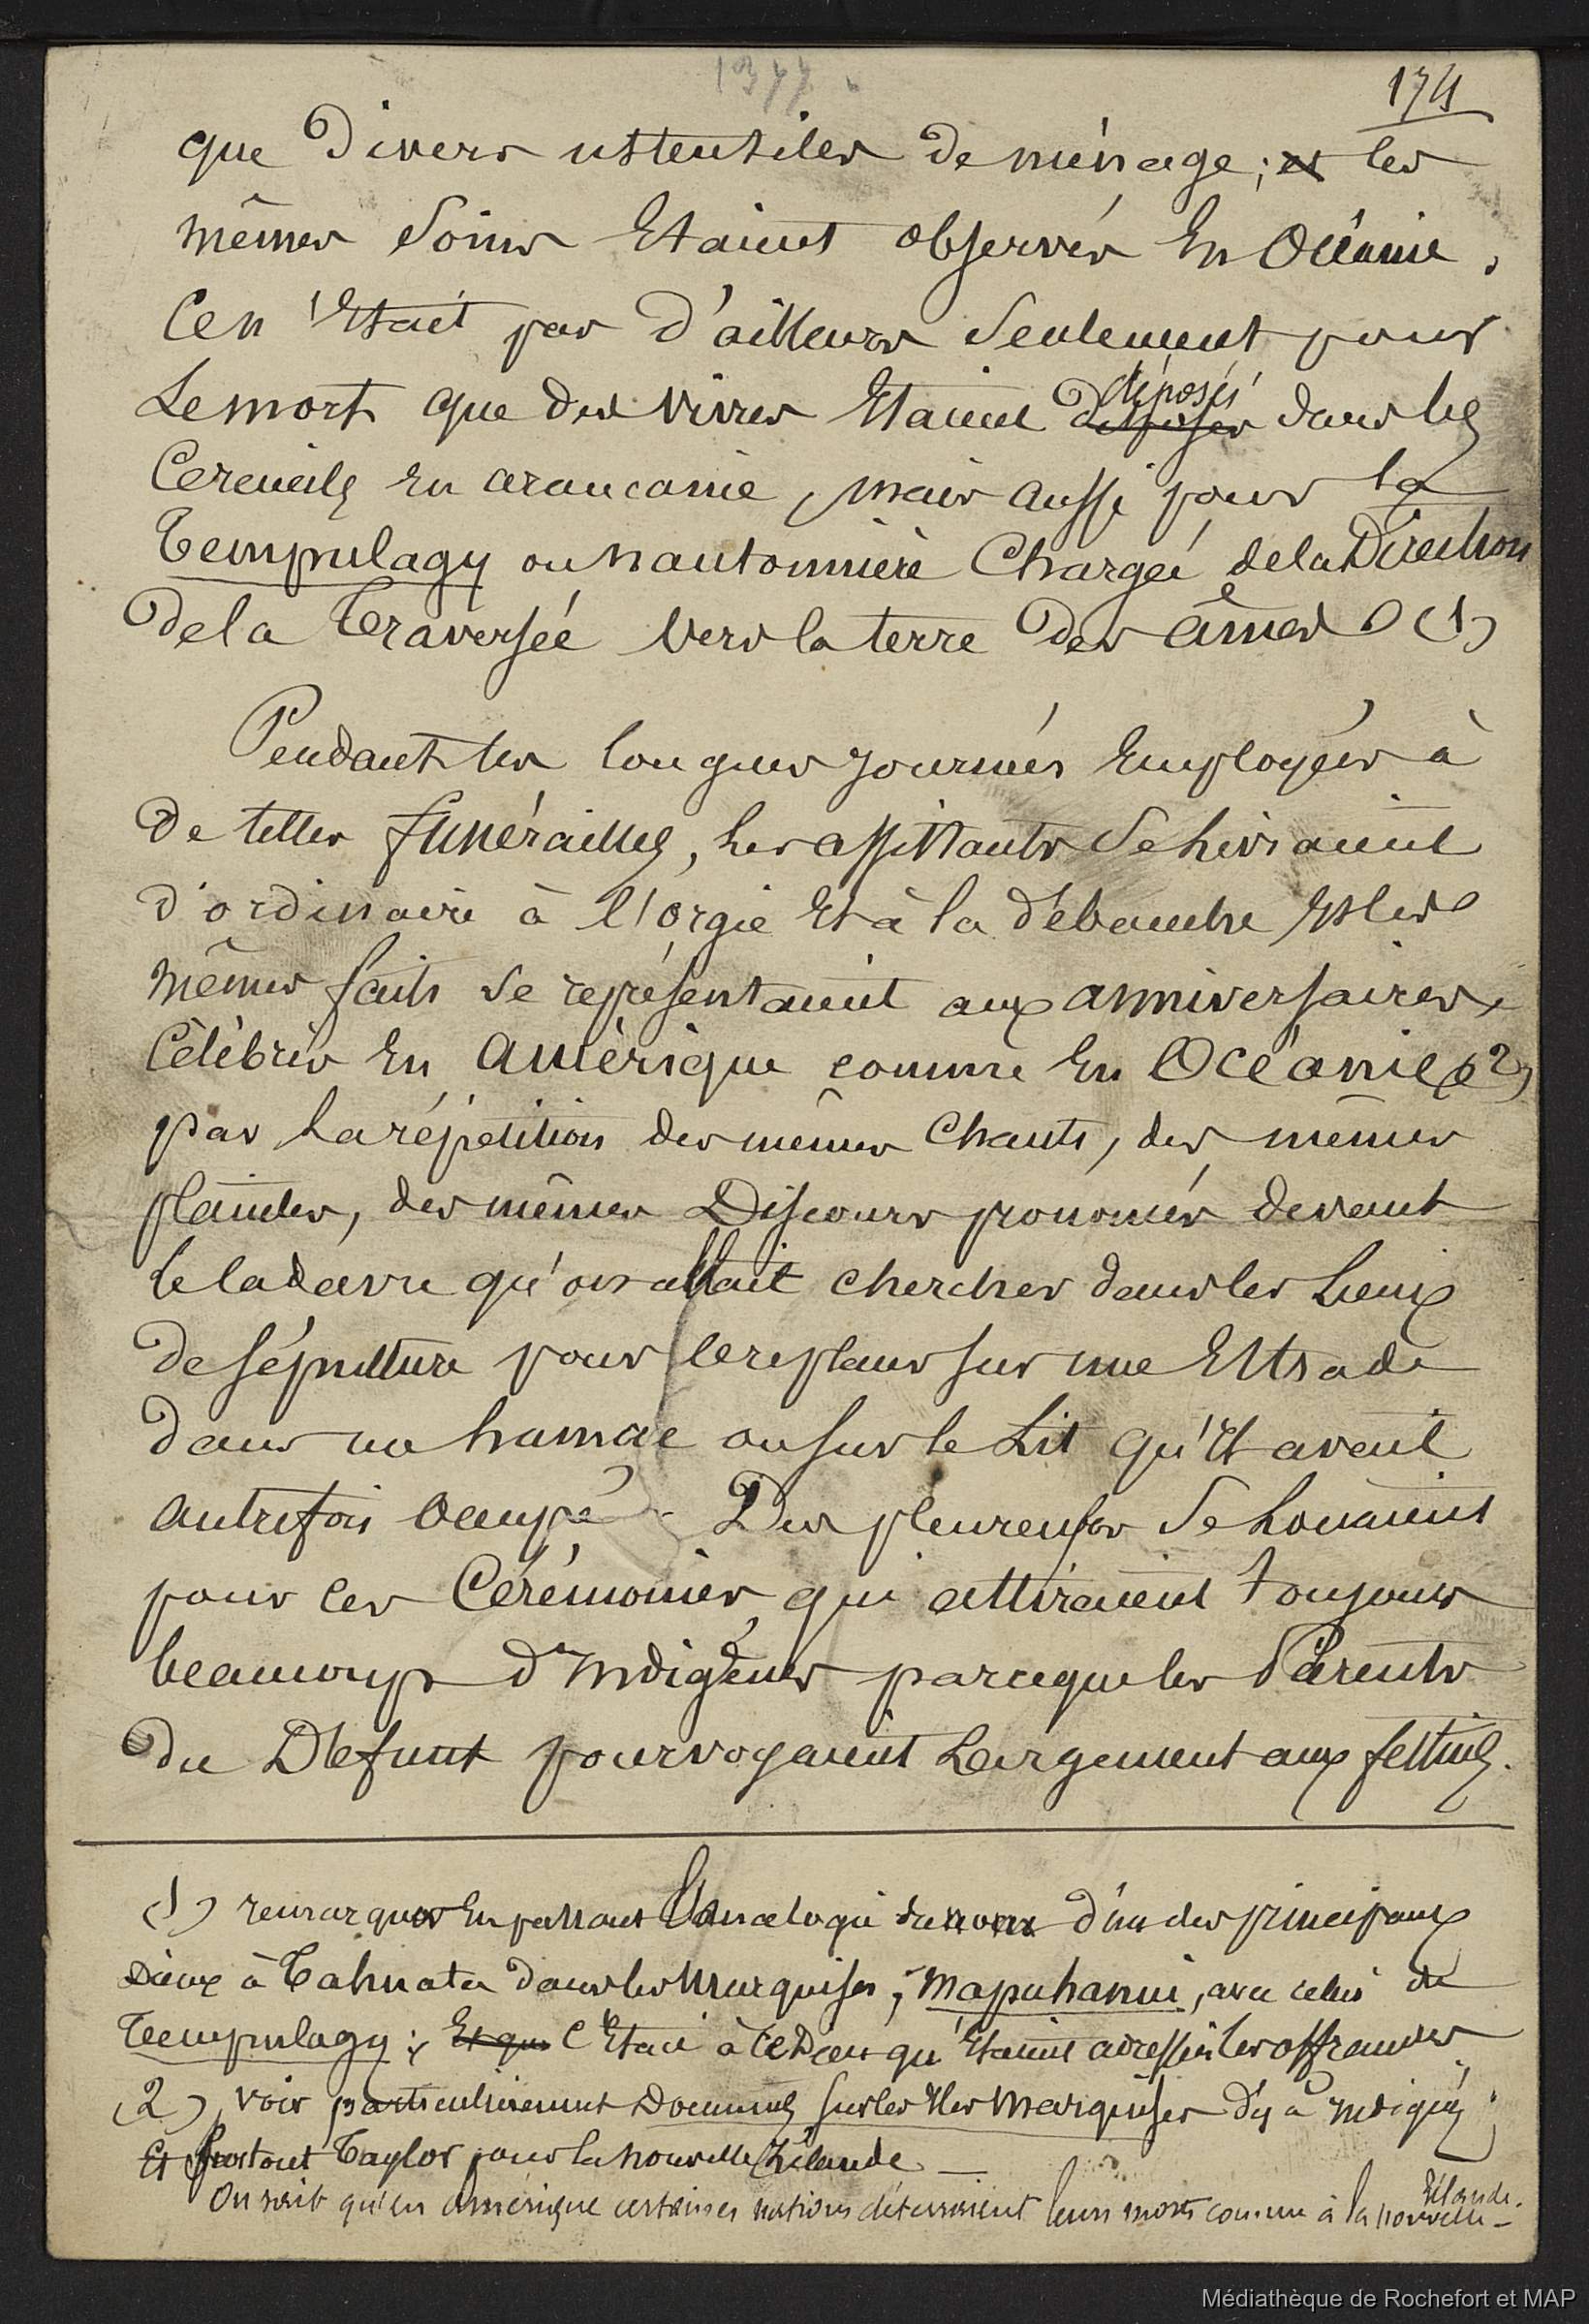 1377
174
que Divers ustensiles De ménage; et les
mêmes Soins Etaient observés En Océanie.
Ce n'était pas D'ailleurs Seulement pour
Le mort que des vivres Etaient disposés déposés dans les
Cercueils En araucanie, mais aussi pour la
Tempulagy ou nautonnière Chargée de la Direction
De la Traversée vers la terre Des âmes (1)
Pendant les longues journées Employées à
De telles funérailles, les assistants Se livraient
d'ordinaire à l'Orgie Et à la débauche Et les
mêmes faits se représentaient aux anniversaires
Célébrés En Amérique comme En Océanie (2)
par La répétition des mêmes Chants, des mêmes
plaintes, des mêmes Discours prononcés devant
le Cadavre qu'on allait chercher dans les Lieux
De sépulture pour le replacer sur une Estrade
Dans un hamac ou sur le Lit qu'Il avait
autrefois occupé. Des pleureuses Se Louaient
pour ces Cérémonies, qui attiraient toujours
beaucoup d'Indigènes parceque les Parents
du Défunt pourvoyaient Largement aux festins.
(1) remarquer En passant l'analogie du nom d'un des principaux
Dieux à Tahuata dans les Marquises, Mapuhanui, avec celui de
Tempulagy; Et que C'Etait à ce Dieu qu'Etaient adressées les offrandes
(2) voir particulièrement Documents sur les Iles Marquises déjà Indiqués;
Et surtout Taylor pour la nouvelle Zélande
On sait qu'en Amérique certaines nations déterraient leurs morts comme à la nouvelle-
Zélande.
Médiathèque de Rochefort et MAP